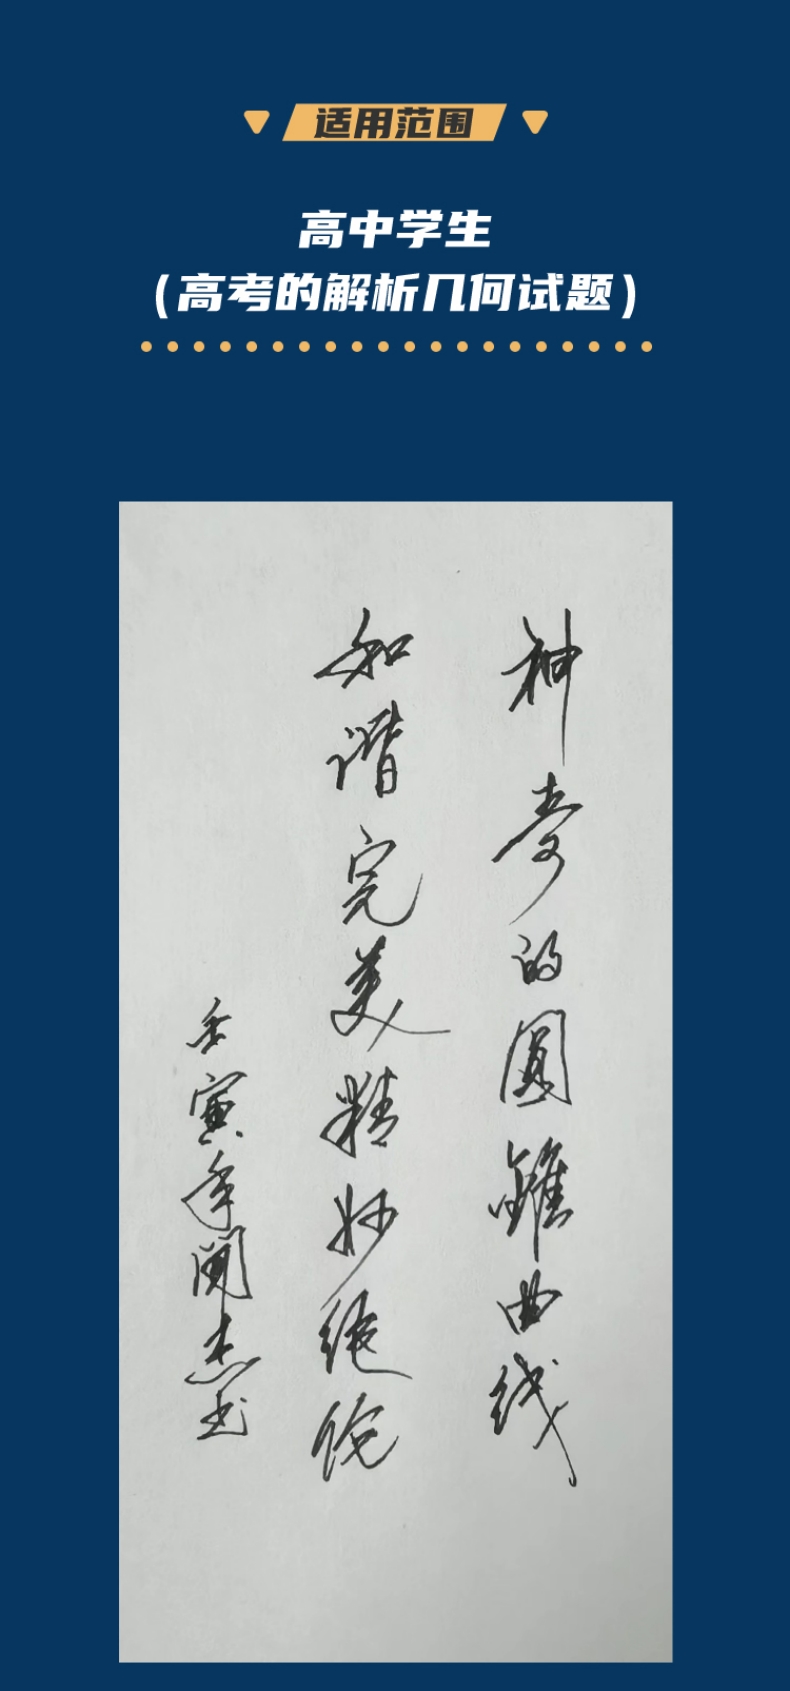 适用范围
高中学生
(高考的解析几何试题)
神奇的圆锥曲线
和谐完美精妙绝伦
壬寅年闻杰书